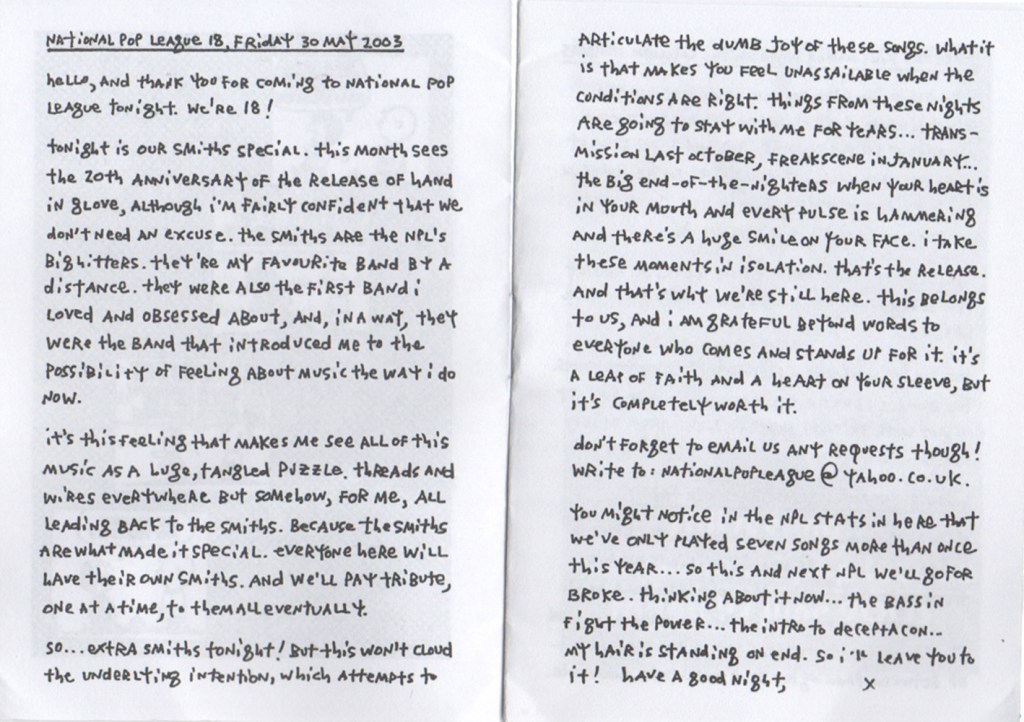 NATIONAL POP LEAGUE 18, FRIDAY 30 MAY 2003
hello, AND thANK YOU FOR COMiNg to NATiONAL POP
LEAGUE toNight. We'RE 18!
toNight is OUR SMiths SPECiAL. this MONth SEES
the 20th ANNiVERSARY OF the RELEASE OF hAND
iN gLOVE, ALthOUgh i'M FAiRLY CONFiDENt thAt WE
DON't NEED AN EXCUSE. the SMiths ARE the NPL'S
Big hittERS. thEY'RE MY FAVOURitE BAND BY A
DiStANCE. thEY WERE ALSO the FiRSt BAND i
LOVED AND OBSESSED ABOUt, AND, iN A WAY, thEY
WERE the BAND thAt iNtRODUCED ME to the
POSSiBiLitY OF FEELiNg ABOUt MUSiC the WAY i DO
NOW.
it's this FEELiNg thAt MAKES ME SEE ALL OF this
MUSiC AS A hUgE, tANgLED PUZZLE. thREADS AND
WiRES EVERYWhERE BUt SOMEhOW, FOR ME, ALL
LEADiNg BACK to the SMiths. BECAUSE the SMiths
ARE WhAt MADE it SPECiAL. EVERYONE hERE WiLL
hAVE thEiR OWN SMiths. AND WE'LL PAY tRiBUtE,
ONE At A tiME, to thEM ALL EVENtUALLY.
SO... EXtRA SMiths toNight! BUt this WON't CLOUD
the UNDERLYiNg iNtENtiON, WhiCh AttEMPtS to
ARtiCULAtE the DUMB JOY OF thESE SONgS. WhAt it
iS thAt MAKES YOU FEEL UNASSAiLABLE WhEN the
CONDitiONS ARE Right. thiNgS FROM thESE NightS
ARE gOiNg to StAY With ME FOR YEARS... tRANS-
MiSSiON LASt OCtOBER, FREAKSCENE iN JANUARY...
the Big END-OF-thE-NightERS WhEN YOUR hEARt iS
iN YOUR MOUth AND EVERY PULSE iS hAMMERiNg
AND thERE'S A hUgE SMiLE ON YOUR FACE. i tAKE
thESE MOMENtS iN iSOLAtiON. thAt'S the RELEASE.
AND thAt'S WhY WE'RE StiLL hERE. this BELONgS
to US, AND i AM gRAtEFUL BEYOND WORDS to
EVERYONE WhO COMES AND StANDS UP FOR it. it'S
A LEAP OF FAith AND A hEARt ON YOUR SLEEVE, BUt
it'S COMPLEtELY WORth it.
DON't FORgEt to EMAiL US ANY REQUEStS thOUgh!
WRitE to: NAtiONALPOPLEAgUE @ YAhOO.CO.UK.
YOU Might NOtiCE iN the NPL StAtS iN hERE thAt
WE'VE ONLY PLAYED SEVEN SONgS MORE thAN ONCE
this YEAR... SO this AND NEXt NPL WE'LL gO FOR
BROKE. thiNKiNg ABOUt it NOW... the BASS iN
Fight the POWER... the iNtRO to DECEPtACON...
MY hAiR iS StANDiNg ON END. SO i'LL LEAVE YOU to
it! hAVE A gOOD Night,     x